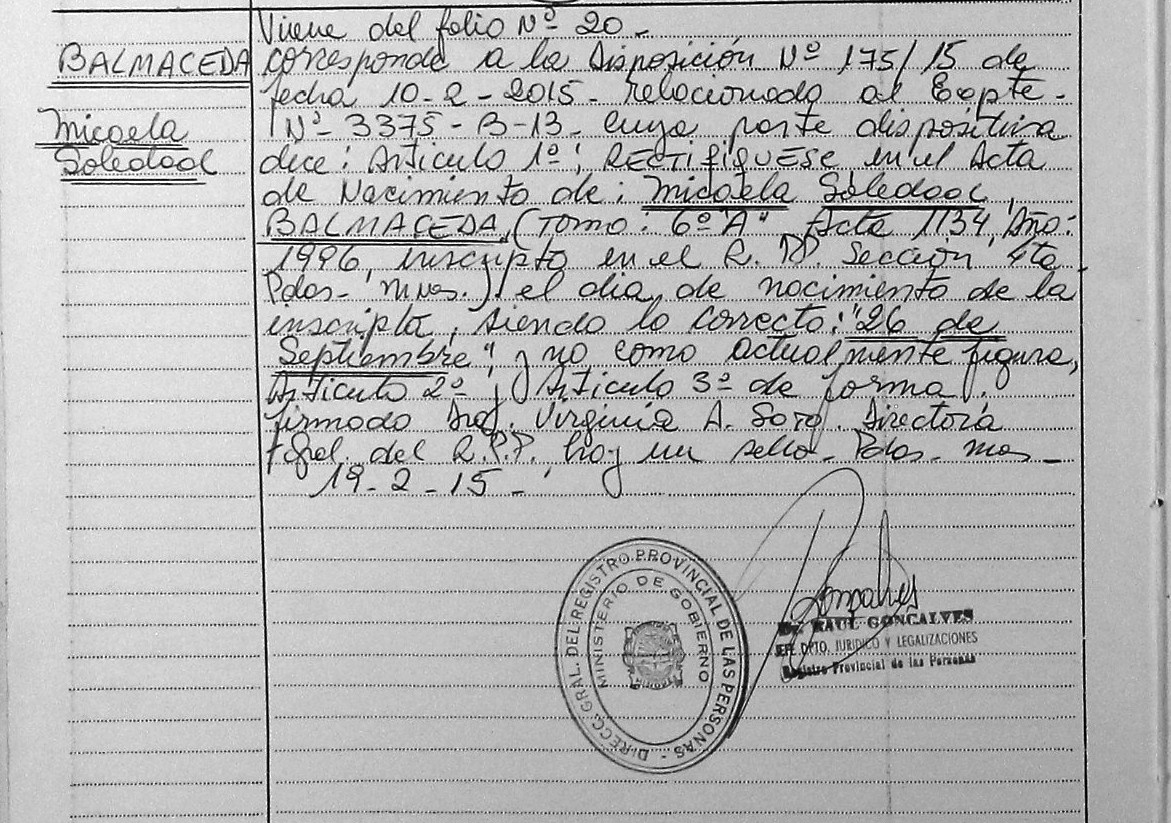 Viene del folio Nº 20 -
BALMACEDA
Micaela
Soledad
Corresponde a la Disposición Nº 175/15 de
fecha 10-2-2015- relacionado al Expte-
Nº 3375-B-13- cuya parte dispositiva
dice: Artículo 1º; RECTIFIQUESE en el Acta
de Nacimiento de: Micaela Soledad
BALMACEDA, (Tomo: 6º "A" Acta 1134, Año:
1996, inscripto en el R. P. Sección 4ta
Pdas- Mnes.) el dia de nacimiento de la
inscripta, siendo lo correcto: "26 de
Septiembre" y no como actualmente figura,
Artículo 2º y Artículo 3º de forma.
firmado Virginia A. Directora
Gral. del R.P.P. hay un sello- Pdas- mas-
19-2-15-
DIRECC. GRAL. DEL REGISTRO PROVINCIAL DE LAS PERSONAS -
MINISTERIO DE GOBIERNO
Goncalves
Dr. RAUL GONCALVES
JEFE DPTO. JURIDICO Y LEGALIZACIONES
Registro Provincial de las Personas